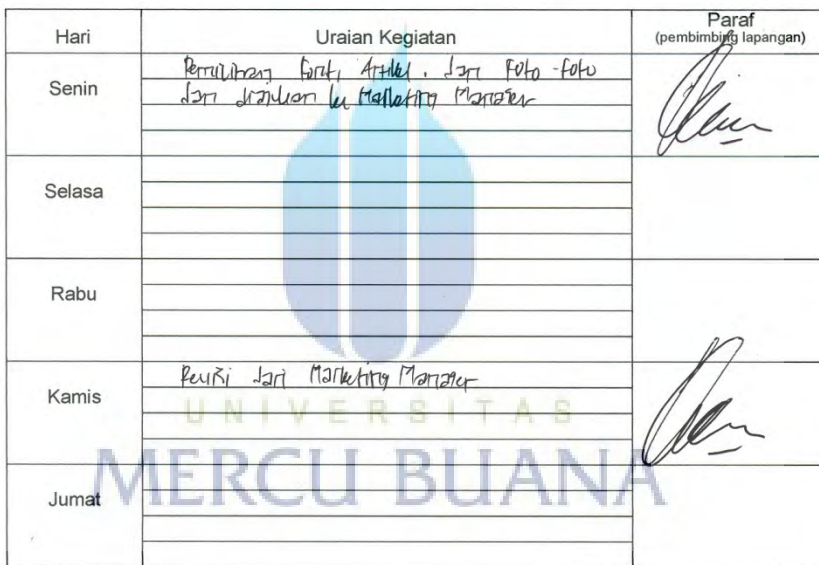 Hari Uraian Kegiatan Paraf
(pembimbing lapangan)
Senin
Pemilihan font, Artikel, dan Foto-foto
dan diajukan ke Marketing Manager
Selasa
Rabu
Kamis
Revisi dari Marketing Manager
UNIVERSITAS
MERCU BUANA
Jumat